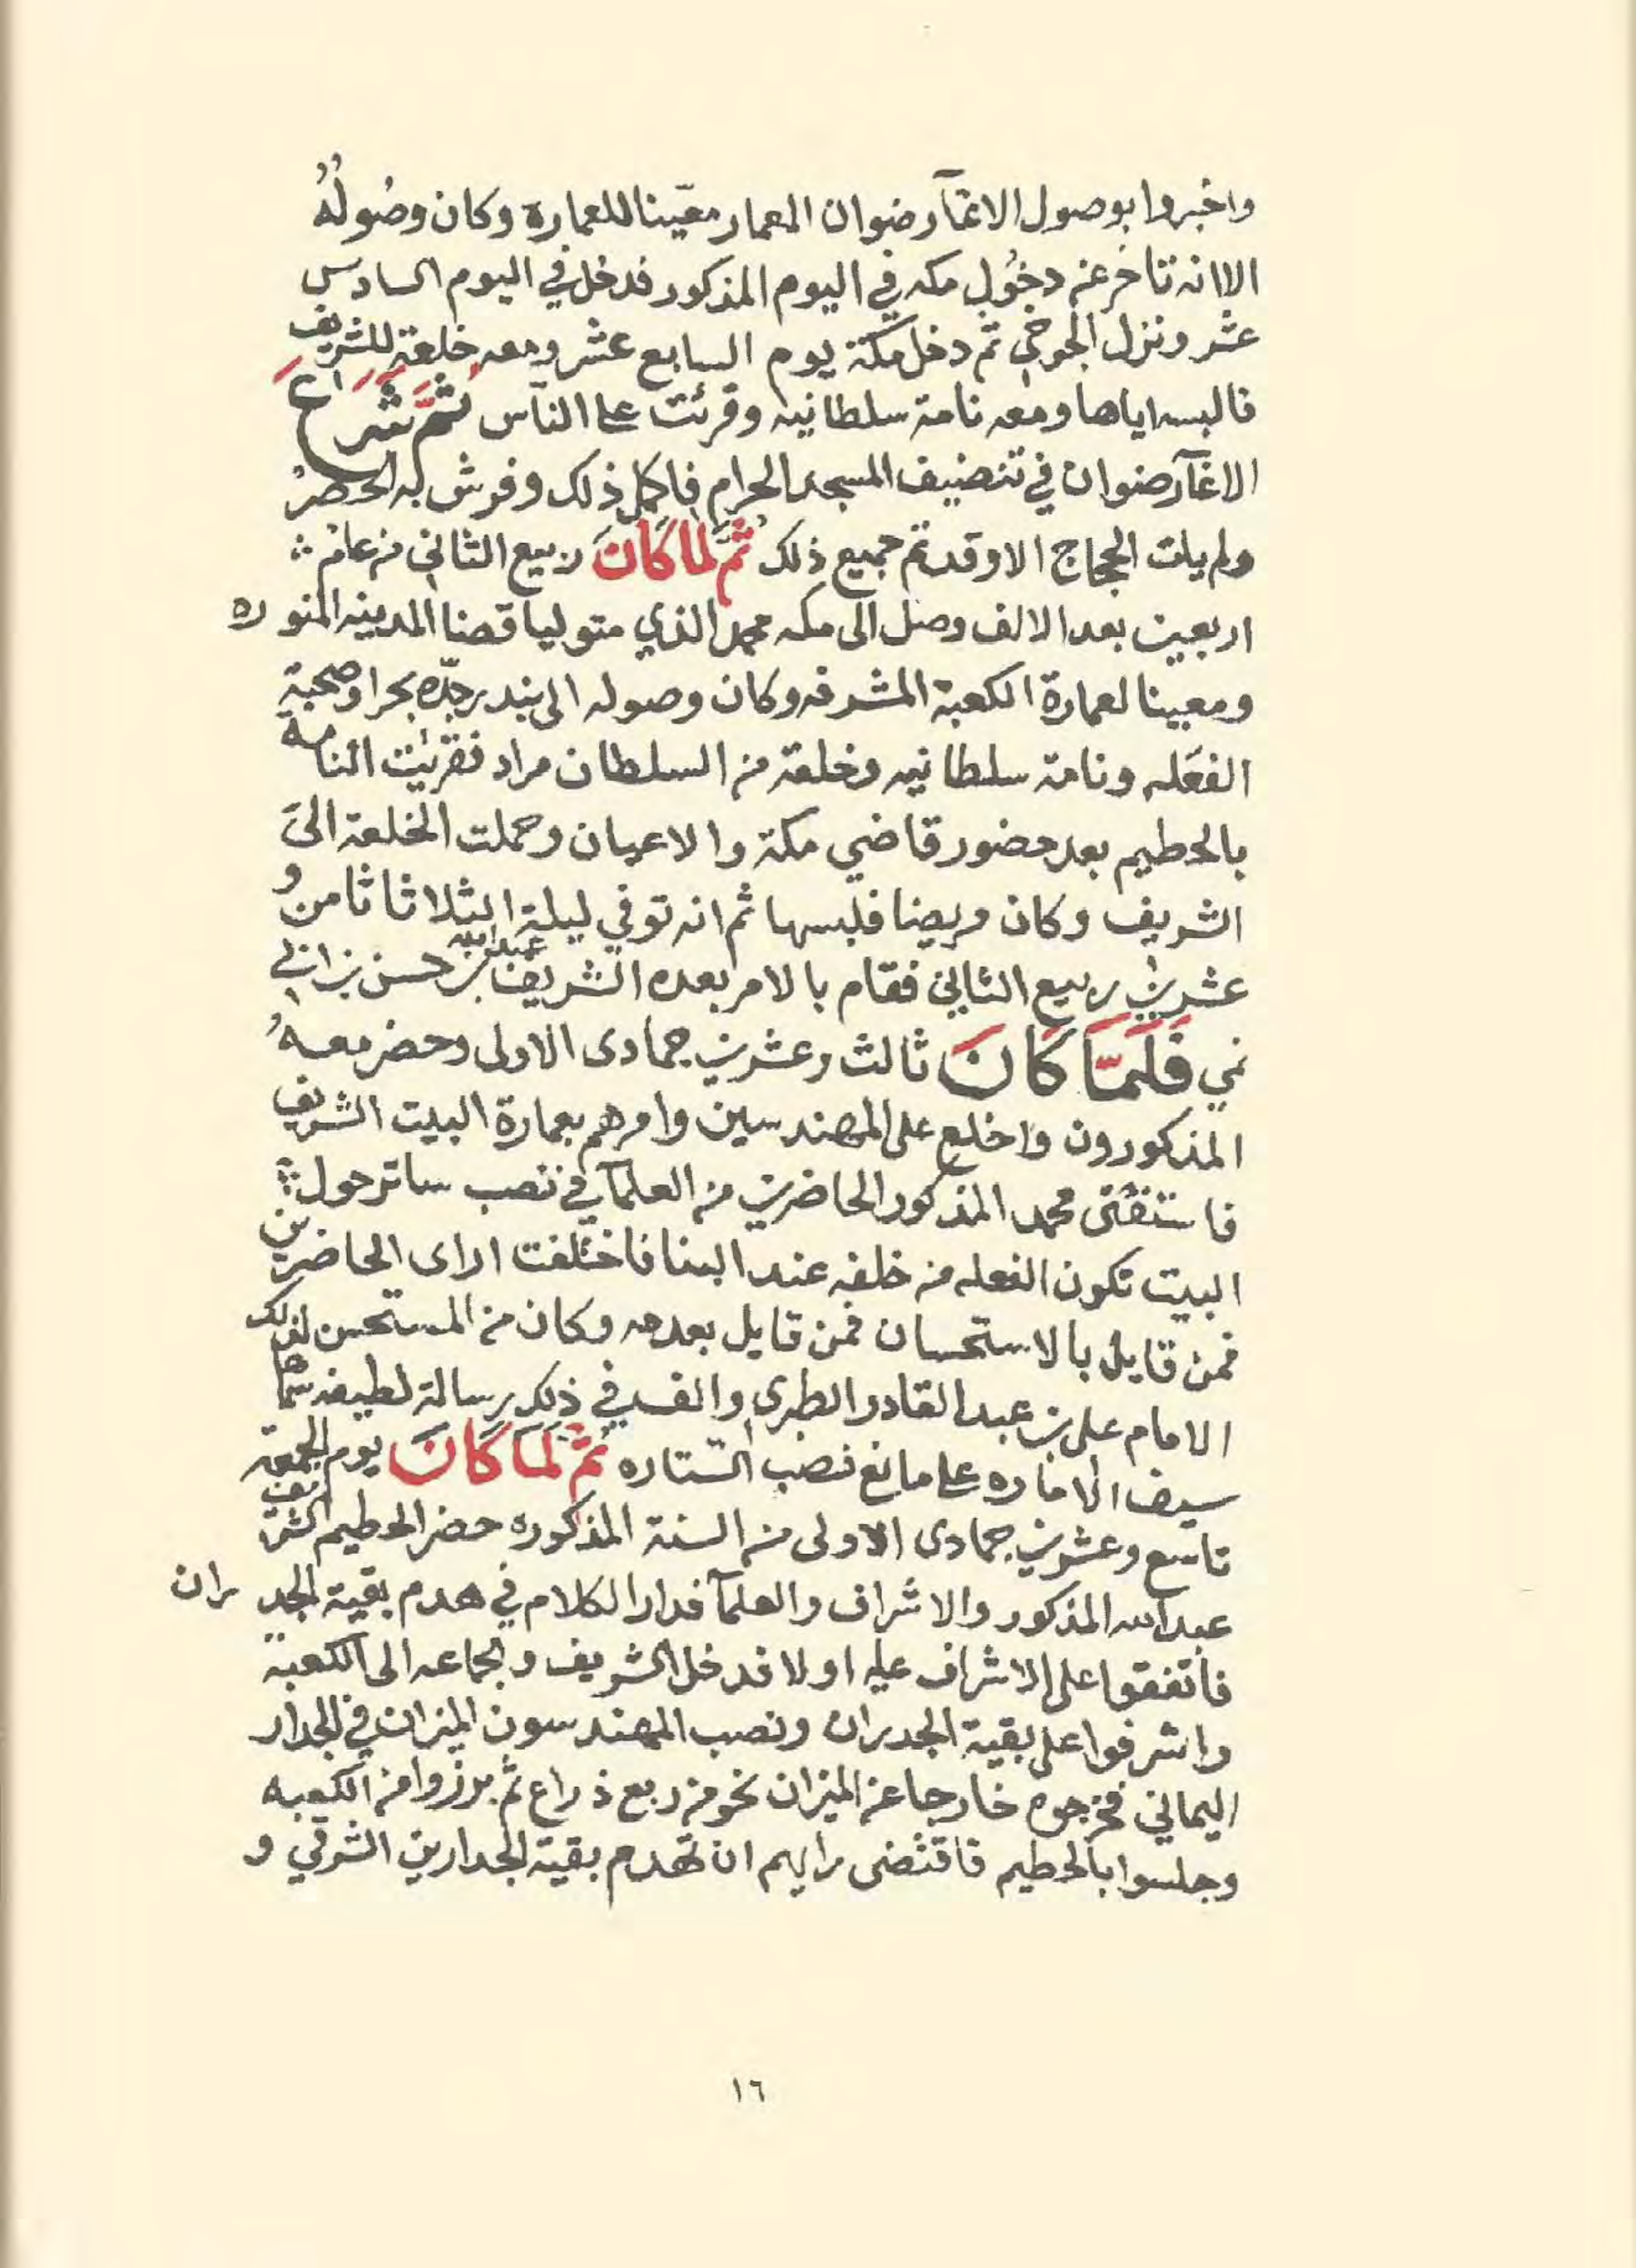 واخبروا بوصول الاغآ رضوان المعمار معيّنا للعمارة وكان وصُولُهُ
الا انه تاخر عن دخُولِ مكه في اليوم المذكور فدخل في اليوم السادس
عشر ونزل الجوخي ثم دخل مكة يوم السابع عشر ومعه خلعة للشريف
فالبسه اياها ومعه نامة سلطانيه وقرئت على النآس ثمَّ شَرَاعَ
الاغآ رضوان في تنضيف المسجد الحرام فاكمل ذلك وفرش به الحصرُ
ولم يات الحجاج الا وقد تم جميع ذلك ثمَّ لمَا كَانَ ربيع الثاني من عام
اربعين بعد الالف وصل الى مكه محمد الذي متوليا قضا المدينه المنوره
ومعينا لعمارة الكعبة المشرفه وكان وصوله الى بندر جدّه بحرا وصحبة
الفعَله ونامة سلطانيه وخلعة من السلطان مراد فقرئت النامة
بالحطيم بعد حضور قاضي مكة والاعيان وحملت الخلعة الىَ
الشريف وكان مريضا فلبسها ثم انه توفي ليلة الثلاثا ثامن و
عشرين ربيع الثاني فقام بالامر بعده الشريف عبدالله بن حسن بن ابي
نمي فَلَمَّا كَانَ ثالث وعشرين جمادى الاولى وحضر معهُ
المذكورون واخلع على المهندسين وامرهم بعمارة البيت الشريف
فاستفتى محمد المذكور الحاضرين من العلمآ في نصب ساتر حول
البيت تكون الفعله من خلفه عند البنا فاختلفت اراى الحاضرين
فمن قايل بالاستحسان فمن قايل بعدمه وكان من المستحسن لذلك
الامام على بن عبد القادر الطبري والف في ذلك رسالة لطيفه سماها
سيف الاماره على مانع نصب السّتاره ثمَّ لمَا كَانَ يوم الجمعه
تاسع وعشرين جمادى الاولى من السنة المذكوره حضر الحطيم الشريف
عبدالله المذكور والاشراف والعلمآ فدار الكلام في هدم بقية الجدران
فاتفقوا على الاشراف عليه اولا فدخل الشريف والجماعه الى الكعبة
واشرفوا على بقية الجدران ونصب المهندسون الميزان في الجدار
اليماني فخرجوه خارجا عن الميزان نحو من ربع ذراع ثم برزوا من الكعبه
وجلسوا بالحطيم فاقتضى رايهم ان تهدم بقية الجدارين الشرقي و
١٦